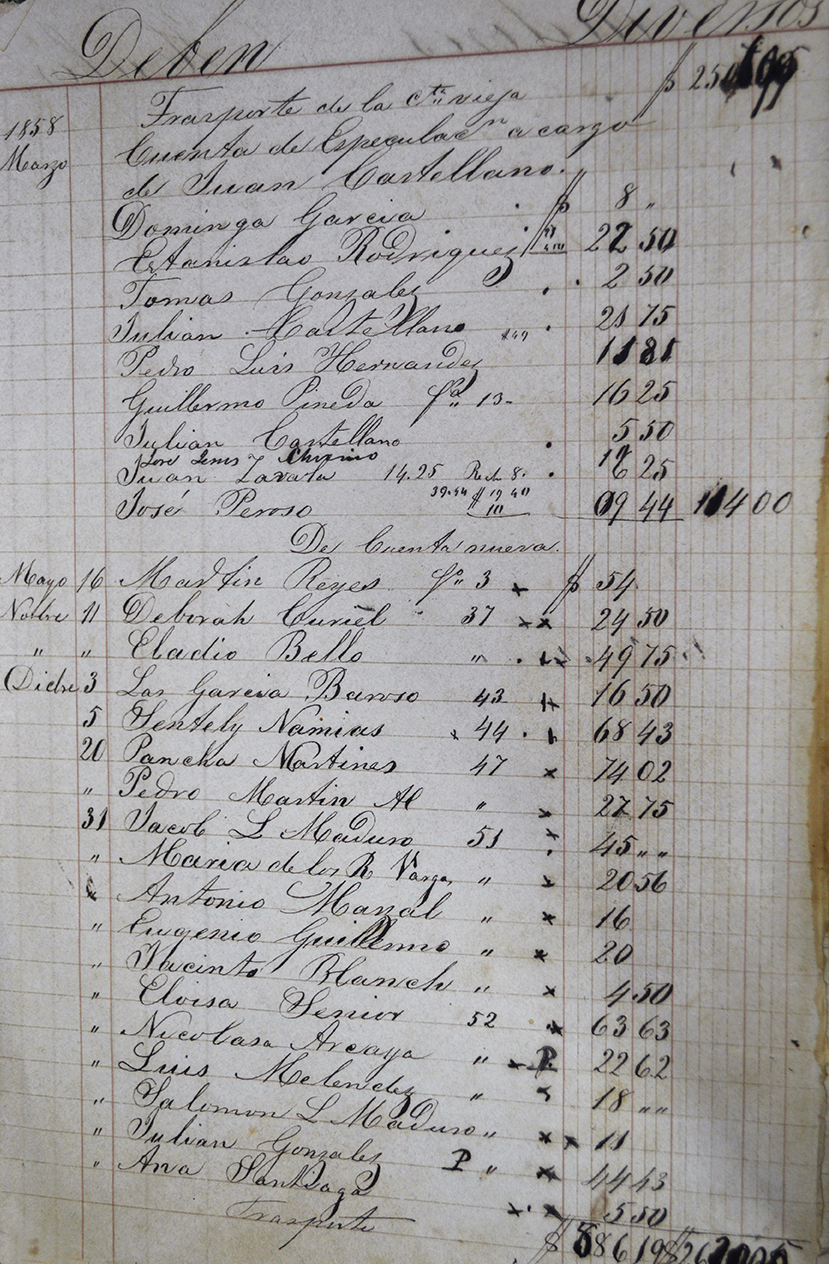 Deben Diversos
Trasporte de la cta vieja $ 250
1858 Cuenta de Especulacn a cargo
Marzo de Juan Castellano.
Dominga Garcia $ 8 "
Estanislao Rodriguez 22 50
Tomas Gonzalez 2 50
Julian Castellano 21 75
Pedro Luis Hernandez 11 81
Guillermo Pineda fo 13 - 16 25
Julian Castellano 5 50
Juan Zavala 14.25 Rech 8. 25
José Peroso 39.44 $ 19 40 09 44 00
De Cuenta nueva.
Mayo 16 Martin Reyes fo 3 x $ 54
Novbre 11 Deborah Curiel " 37 xx 24 50
" " Eladio Bello " 49 75
Dicbre 3 Las Garcia Baroso 43 x 16 50
5 Sentely Namias 44 68 43
20 Pancha Martines 47 x 74 02
" Pedro Martin Al " x 27 75
31 Jacob L Maduro 51 x 45 " "
" Maria de los R Vargas " x 20 56
Antonio Mazal " x 16
" Eugenio Guillermo " x 20
" Jacinto Blanch " x 4.50
" Eloisa Senior 52 x 63 63
" Nicolasa Arcaya " x P. 22 62
" Luis Melendez " x 18 " "
" Salomon L Maduro " x x 11
" Julian Gonzalez P " x 44 43
" Ana Santiago x x 5 50
Trasporte $ 586 19 $ 26